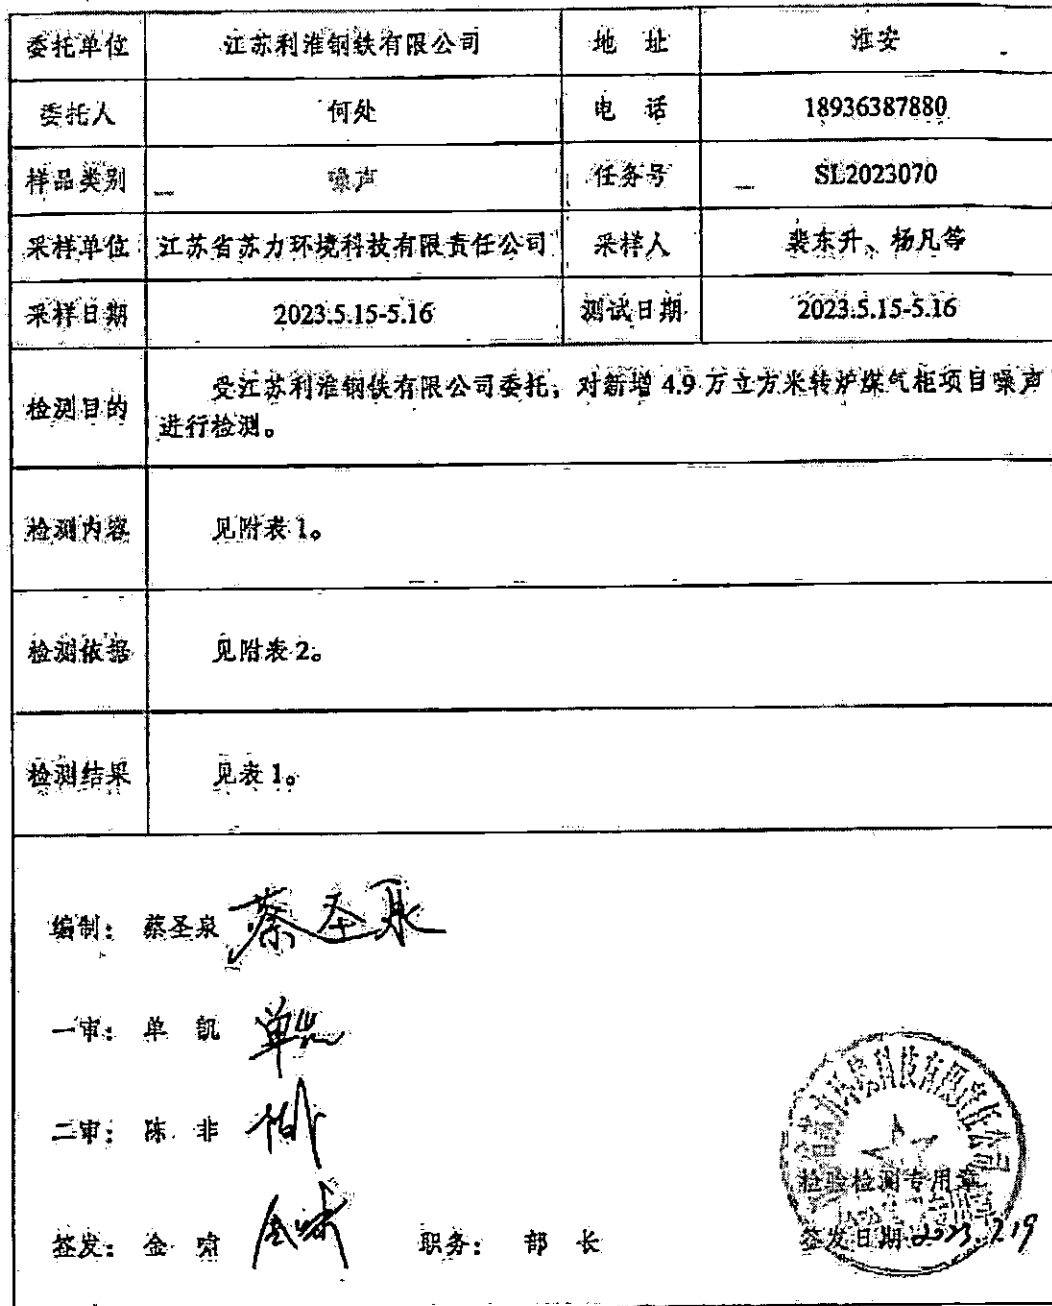 委托单位 江苏利淮钢铁有限公司 地 址 淮安
委托人 何处 电 话 18936387880
样品类别 噪声 任务号 SL2023070
采样单位 江苏省苏力环境科技有限责任公司 采样人 裴东升、杨凡等
采样日期 2023.5.15-5.16 测试日期 2023.5.15-5.16
检测目的 受江苏利淮钢铁有限公司委托，对新增 4.9 万立方米转炉煤气柜项目噪声
进行检测。
检测内容 见附表 1。
检测依据 见附表 2。
检测结果 见表 1。
编制： 蔡圣泉 蔡圣泉
一审： 单 凯 单凯
二审： 陈 非
签发： 金 啸 金啸 职务： 部 长
苏力环境科技有限责任公司
检验检测专用章
签发日期 2023.7.19